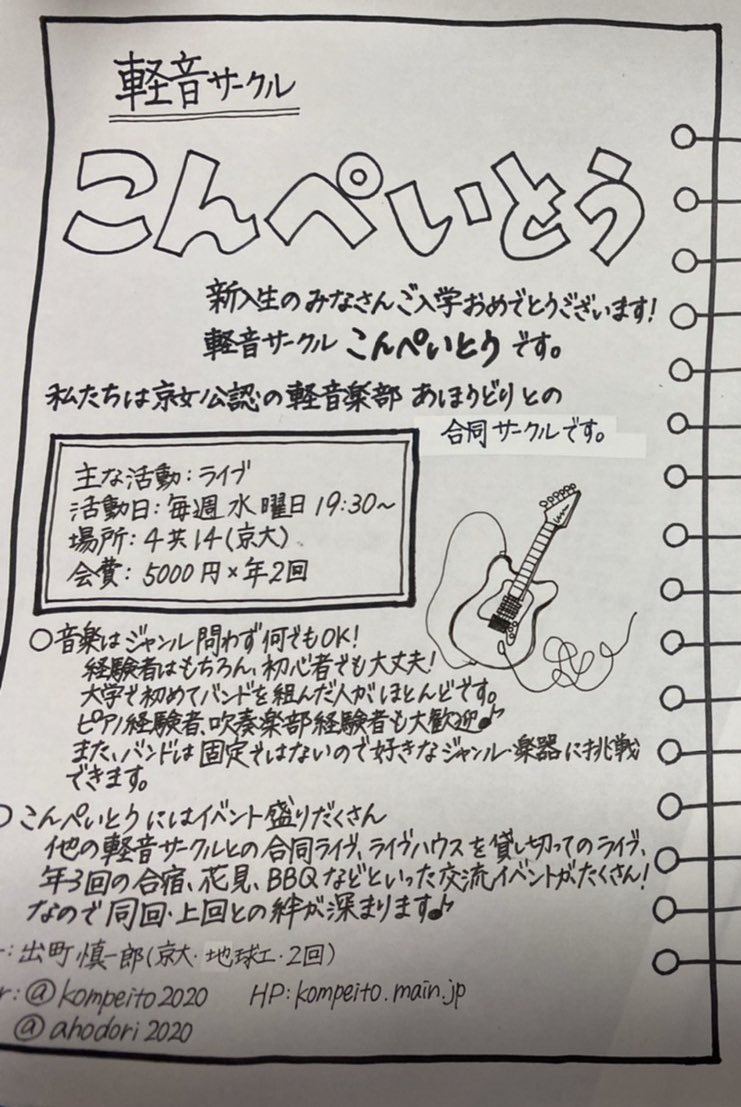 軽音サークル
こんぺいとう
新入生のみなさんご入学おめでとうございます!
軽音サークル こんぺいとう です。
私たちは京女公認の軽音楽部 あほうどりとの
合同サークルです。
主な活動:ライブ
活動日:毎週水曜日19:30~
場所:4共14(京大)
会費:5000円×年2回
○音楽はジャンル問わず何でもOK!
経験者はもちろん、初心者でも大丈夫!
大学で初めてバンドを組んだ人がほとんどです。
ピアノ経験者、吹奏楽部経験者も大歓迎♪
また、バンドは固定ではないので好きなジャンル・楽器に挑戦
できます。
○こんぺいとうにはイベント盛りだくさん
他の軽音サークルとの合同ライブ、ライブハウスを貸し切ってのライブ、
年3回の合宿、花見、BBQなどといった交流イベントがたくさん!
なので同回・上回との絆が深まります♪
:出町慎一郎(京大・地球工・2回)
r:@kompeito2020 HP:kompeito.main.jp
@ahodori2020